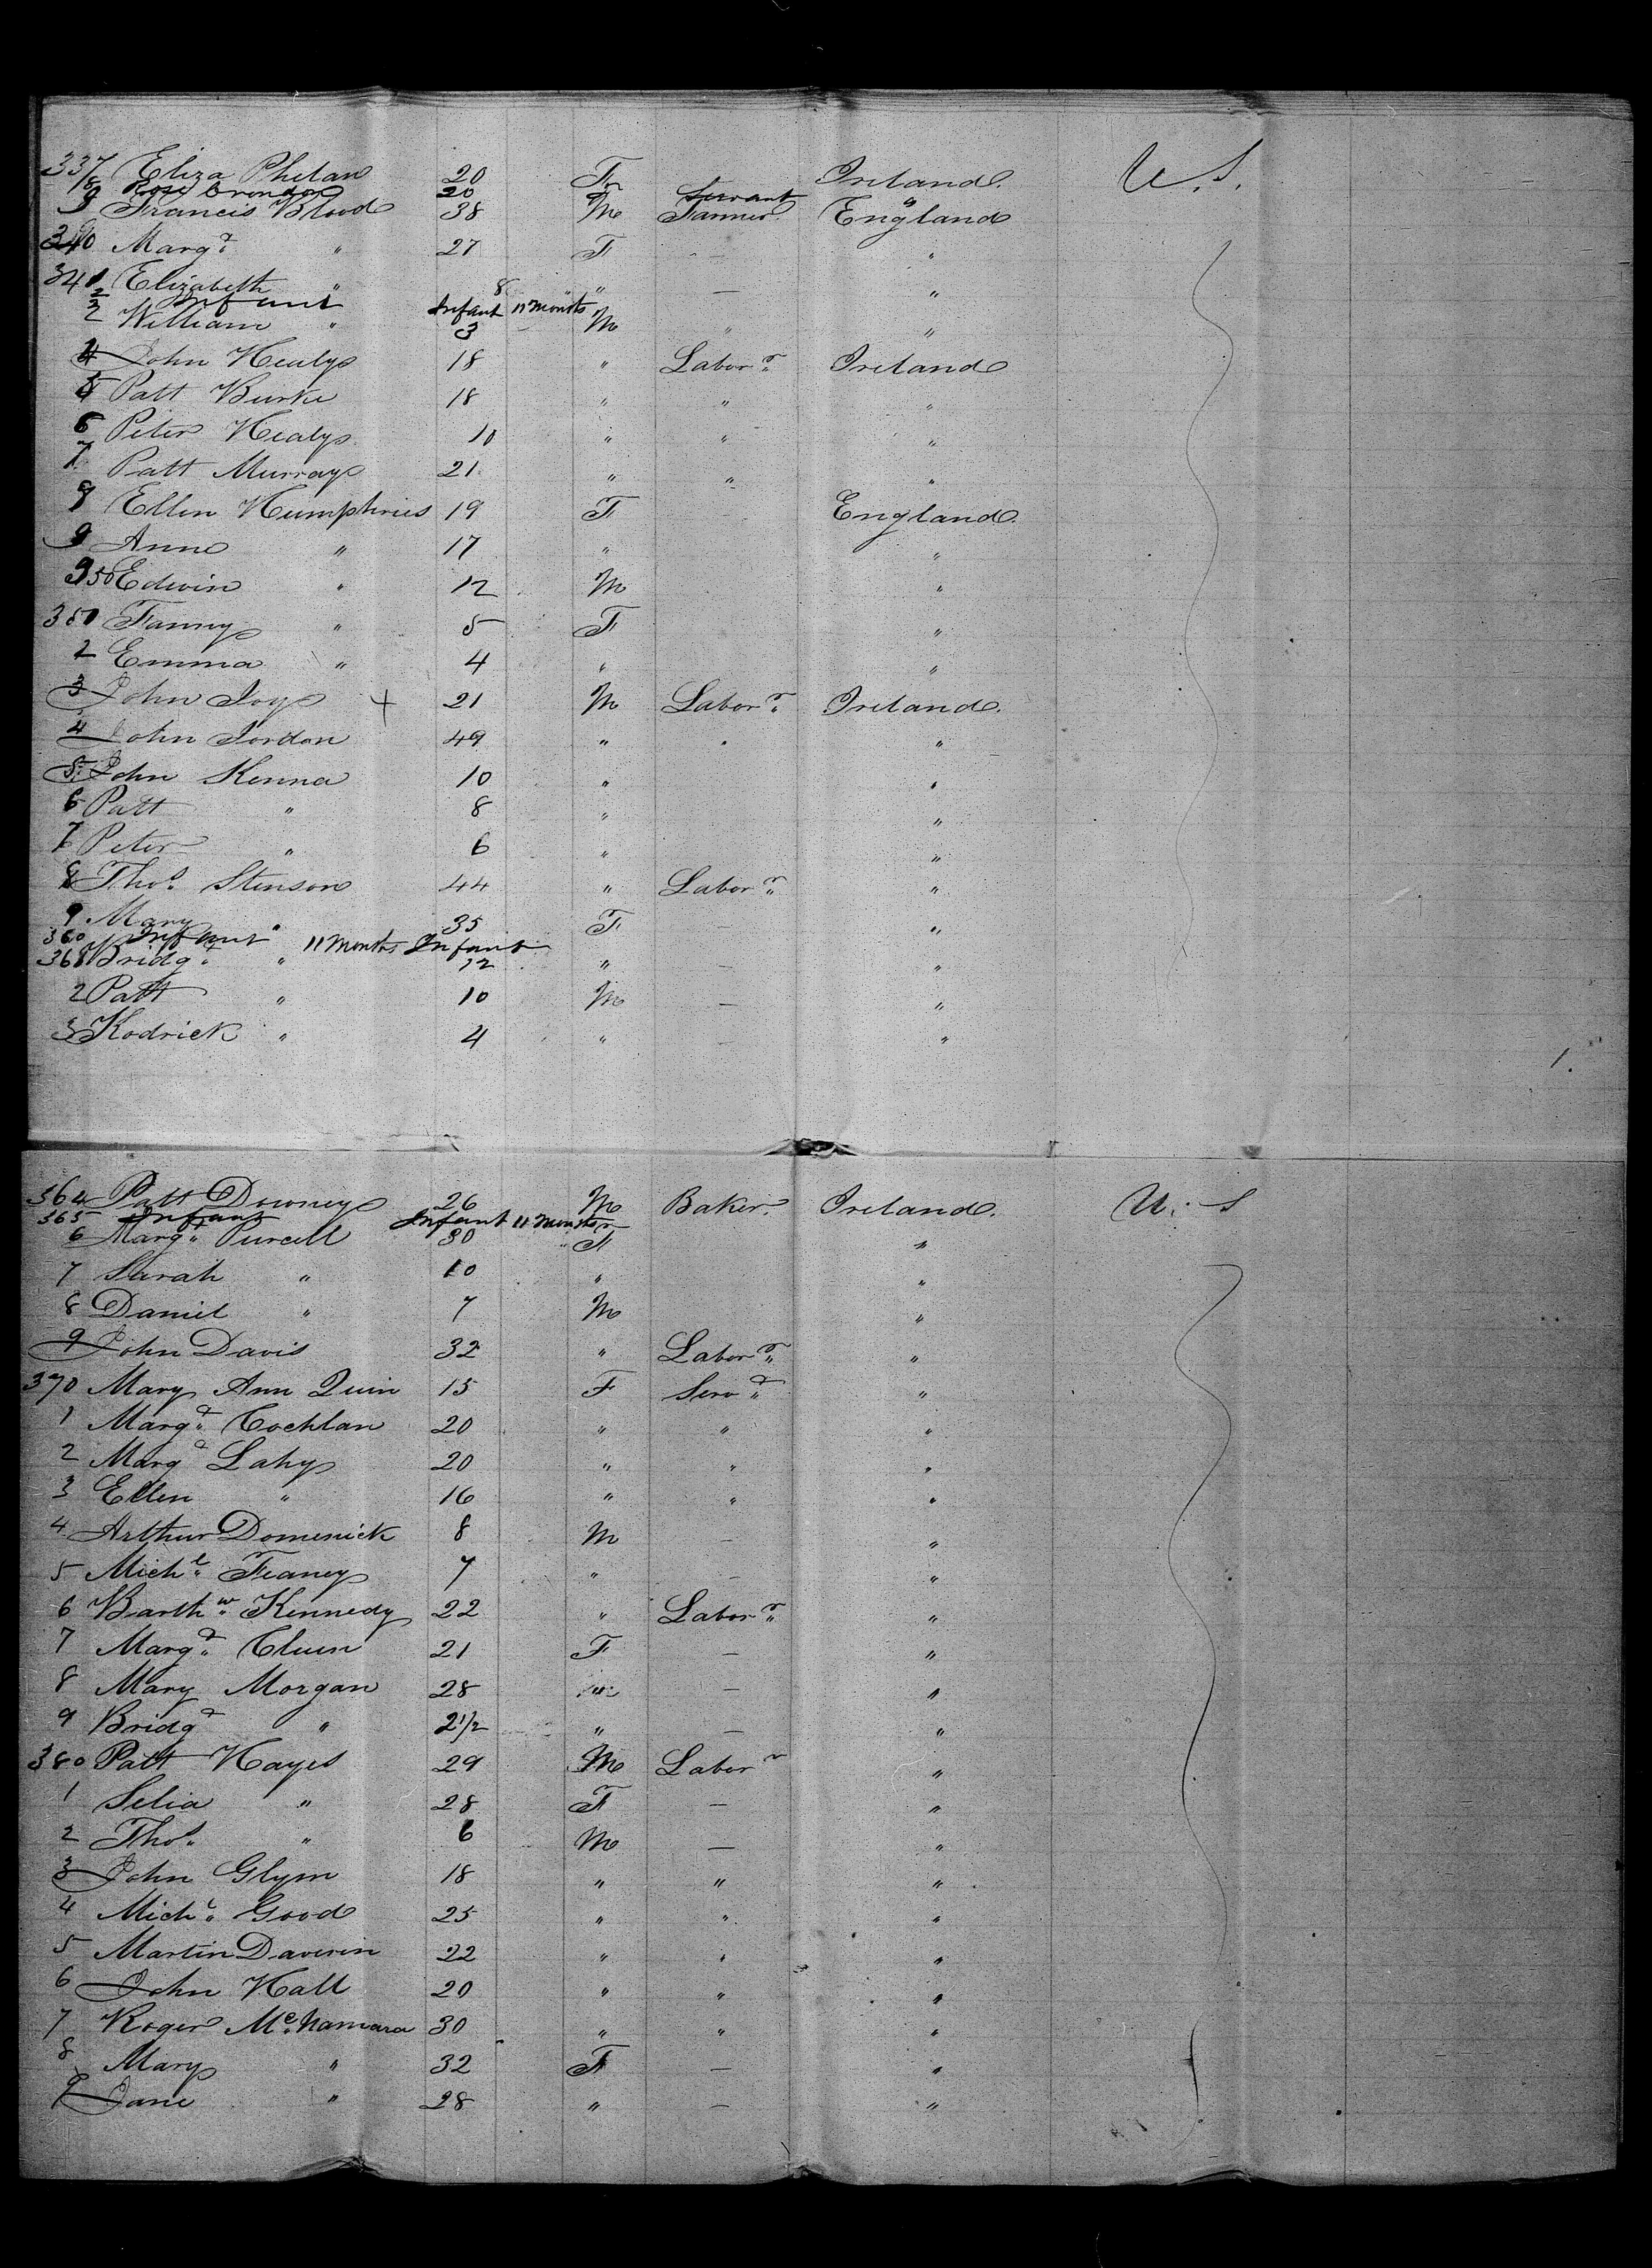 337 Eliza Phelan 20 F Ireland. U.S.
8 Rose 20 " Servant "
9 Francis Blood 38 M Farmer England
340 Margt " 27 F - "
341 Elizabeth " 8 " - "
2 Infant Infant 11 months
3 William " 3 M " "
4 John Healy 18 " Labor.r Ireland
5 Patt Burke 18 " " "
6 Peter Healy 10 " " "
7 Patt Murray 21 " " "
8 Ellen Humphries 19 F England.
9 Anne " 17 " "
350 Edwin " 12 M "
Fanny " 5 F "
2 Emma " 4 " "
3 John Joy + 21 M Labor.r Ireland.
4 John Jordon 49 " " "
5 John Kenna 10 " "
6 Patt " 8 " "
7 Peter " 6 " "
8 Thos. Stenson 44 " Labor.r "
9 Mary " 35 F - "
360 Infant " 11 months Infant
Bridgt " 12 " - "
2 Patt " 10 M - "
3 Rodrick " 4 " - "
1.
364 Patt Downey 26 M Baker. Ireland. U. S
365 Infant Infant 11 months
6 Margt Purcell 30 F "
7 Sarah " 10 " "
8 Daniel " 7 M "
9 John Davis 32 " Labor.r "
370 Mary Ann Quin 15 F Servt "
1 Margt Cochlan 20 " " "
2 Margt Lahy 20 " " "
3 Ellen " 16 " " "
4 Arthur Domenick 8 M - "
5 Michl Feaney 7 " - "
6 Barthw Kennedy 22 " Labor.r "
7 Margt Cluen 21 F - "
8 Mary Morgan 28 " - "
9 Bridgt " 2 1/2 " - "
380 Patt Hayes 29 M Labor r "
1 Selia " 28 F - "
2 Thos. " 6 M - "
3 John Glynn 18 " " "
4 Michl Good 25 " " "
5 Martin Daverin 22 " " "
6 John Hall 20 " " "
7 Roger McNamara 30 " " "
8 Mary " 32 F - "
9 Jane " 28 " - "